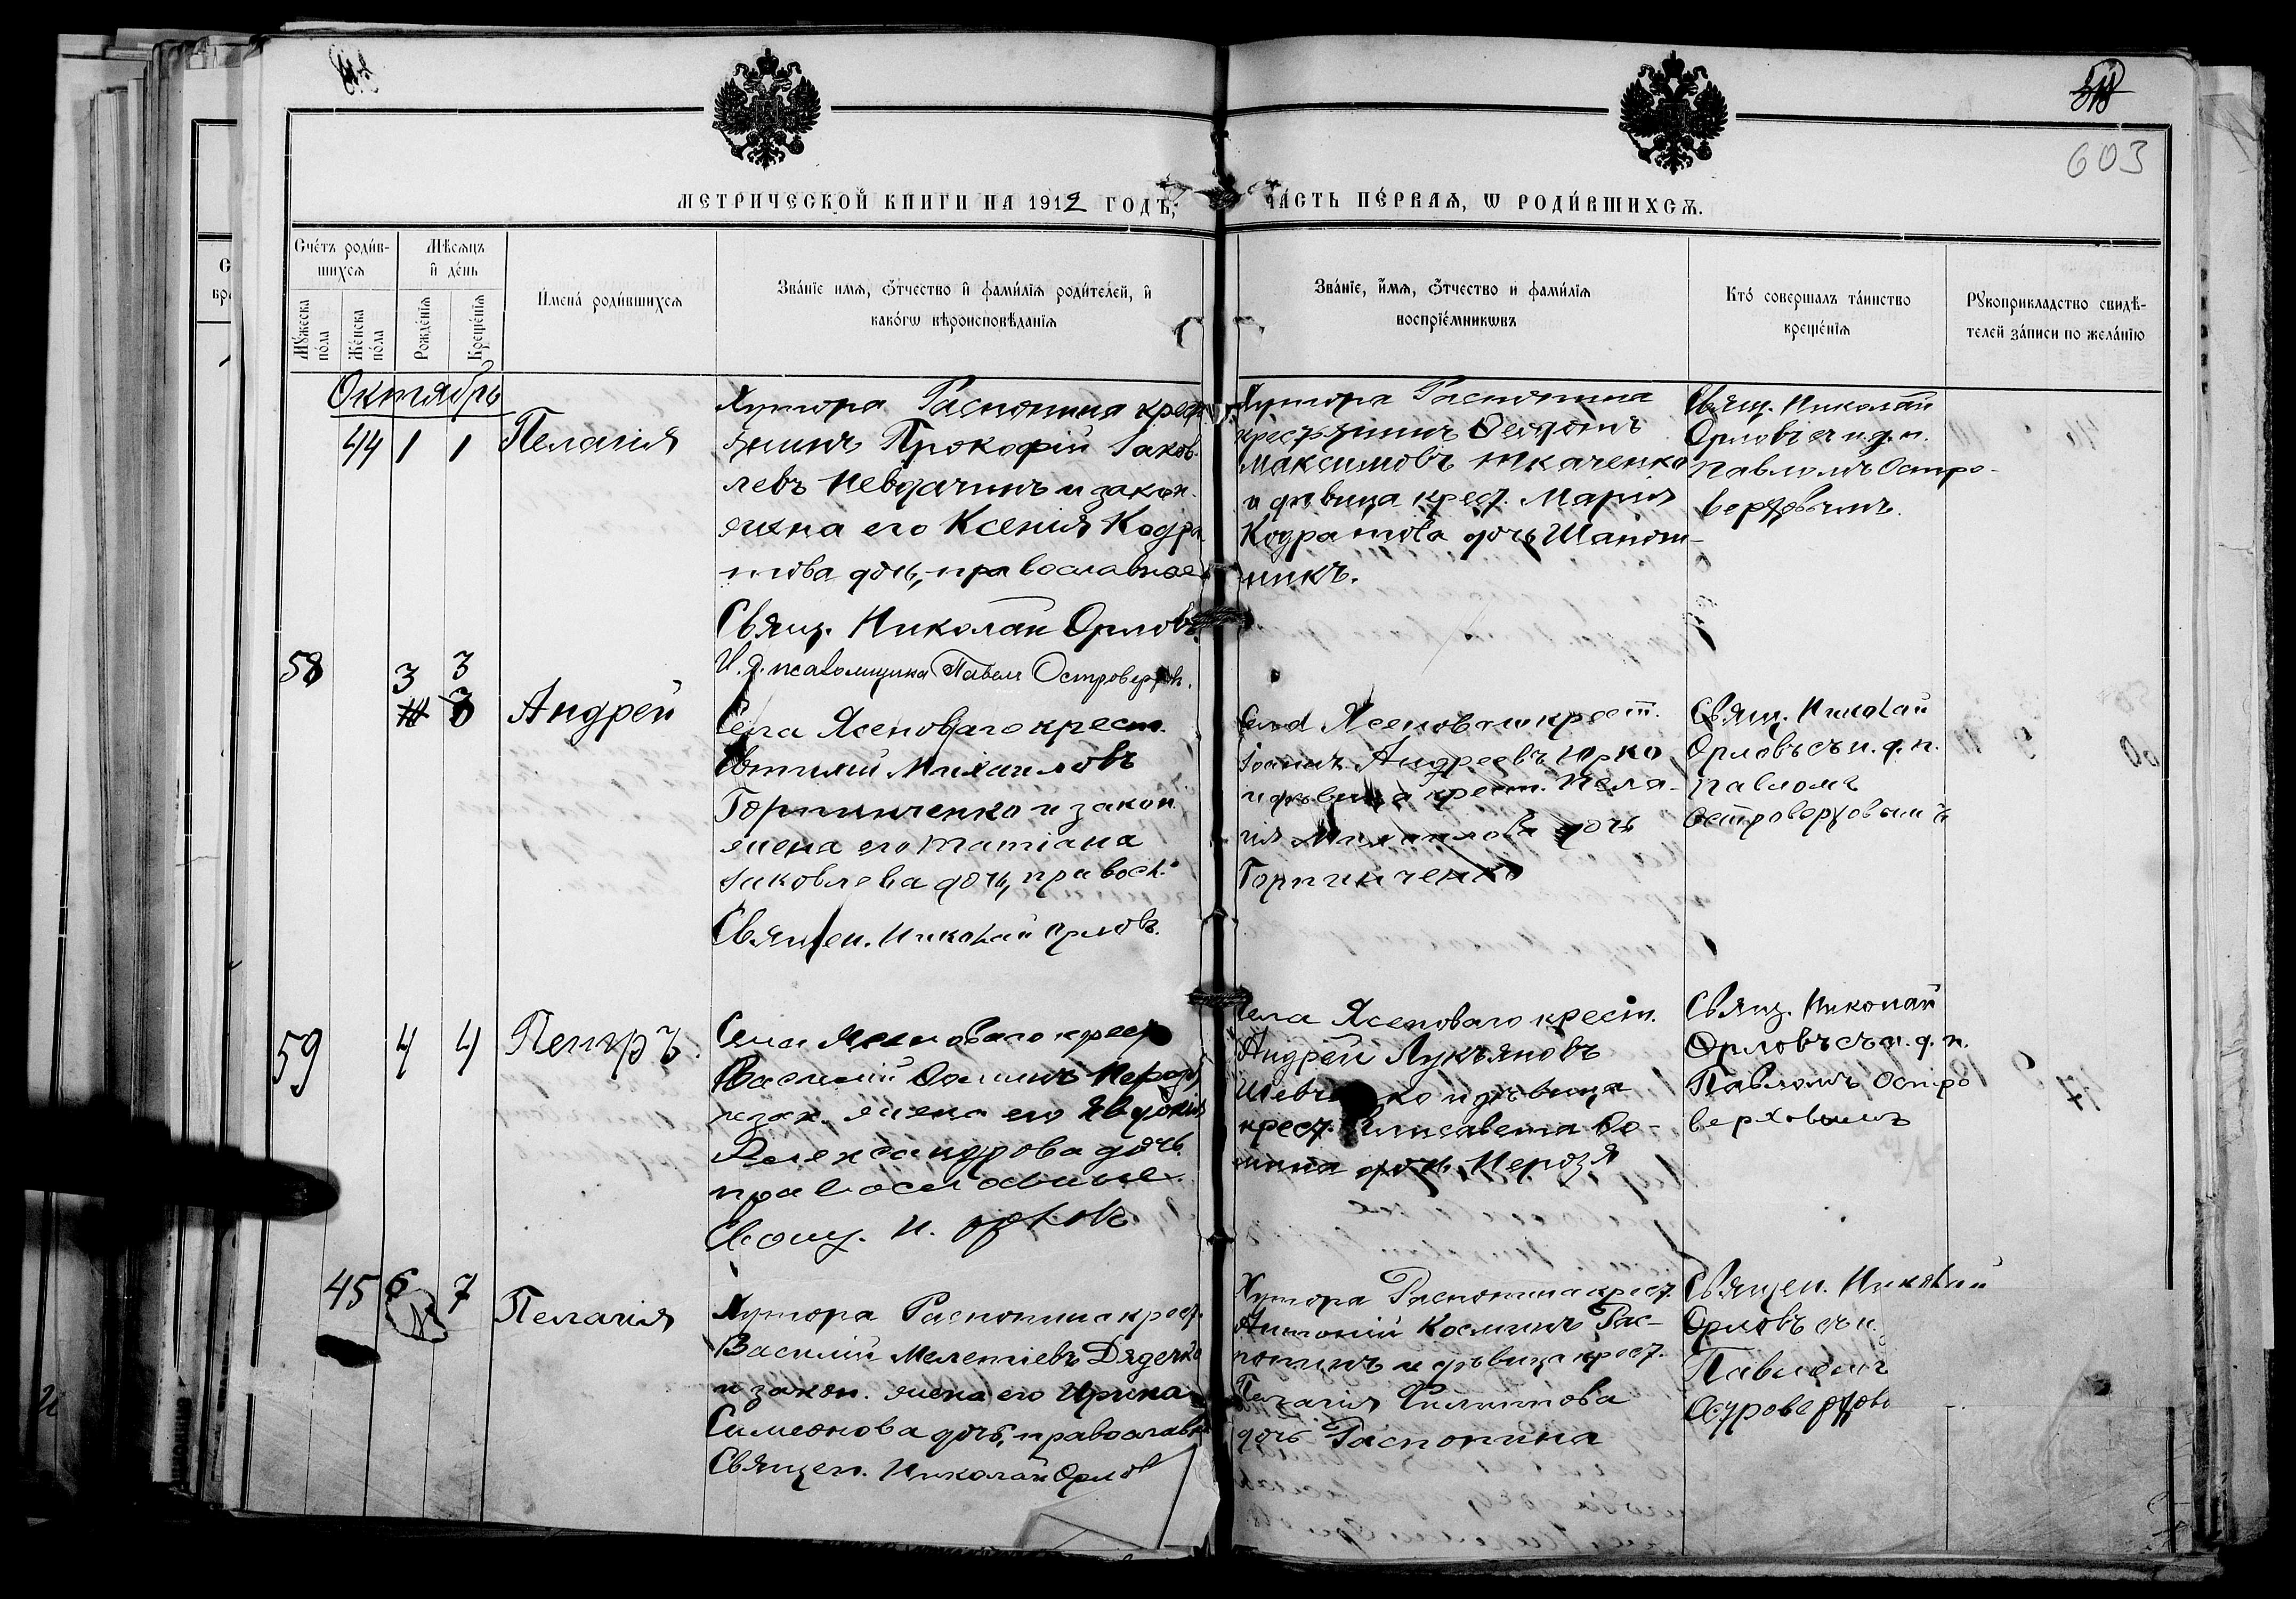 603
МЕТРИЧЕСКОЙ КНИГИ НА 1912 ГОДЪ,
ЧА́СТЬ ПЕ́РВАѦ, Ѡ РОДИ́ВШИХСѦ.
Сче́тъ роди́в-
шихсѧ
Мѣ́сѧцъ
и҆ де́нь
Мꙋ́жеска
по́ла
Же́нска
по́ла
Рожде́нїѧ
Креще́нїѧ
И҆мена̀ роди́вшихсѧ
Зва́нїе имѧ, ѻ҆́тчество и҆ фами́лїѧ роди́телей, и҆
како́гѡ вѣроисповѣ́данїѧ
Зва́нїе, и҆́мѧ, ѻ҆́тчество и҆ фами́лїѧ
воспрїе́мникѡвъ
Кто́ соверша́лъ та́инство
креще́нїѧ
Рꙋкоприкла́дство свидѣ́-
телей за́писи по жела́нїю
Октябрь
44 1 1 Пелагія
Хутора Распопина крест
янинъ Прокофій Іаков-
левъ и закон.
жена его Ксенія Кодра
това дочь, православные
Свящ. Николай Орловъ
И. д. псаломщика Павелъ Островерхов.
Хутора Распопина
крестьянинъ
Максимовъ Ткаченко
и дѣвица крест. Марія
Кодратова дочь Шапош-
никъ.
Свящ. Николай
Орловъ съ и. д. п.
Павломъ Остро-
верховымъ.
58 3 3 Андрей
Села Ясеноваго крест.
Евтихій Михаиловъ
Горпинченко и закон.
жена его Татіана
Іаковлева дочь, правосл.
Священ. Николай Орловъ.
Села Ясеноваго крест.
Іоаннъ Андреевъ Юрко
и дѣвица крест. Пела-
гія Михаилова дочь
Горпинченко
Свящ. Николай
Орловъ съ и. д. п.
Павломъ
Островерховымъ
59 4 4 Петръ.
Села Ясеноваго крест
Василій Ѳоминъ
и зак. жена его Евдокія
Александрова дочь
православные.
Свящ. Н. Орловъ
Села Ясеноваго крест.
Андрей Лукьяновъ
Шевченко и дѣвица
крест. Елисавета Ѳо-
мина дочь
Свящ. Николай
Орловъ съ и. д. п.
Павломъ Остро
верховымъ
45 6 7 Пелагія
Хутора Распопина крест.
Василій Мелетіевъ Дядечко
и закон. жена его Ирина
Симеонова дочь, православн
Священ. Николай Орлов
Хутора Распопина крест.
Антоній Косминъ Рас-
попинъ и дѣвица крест.
Пелагія Филиппова
дочь Распопина
Священ. Николай
Орловъ съ и.
Павломъ
Островерхов